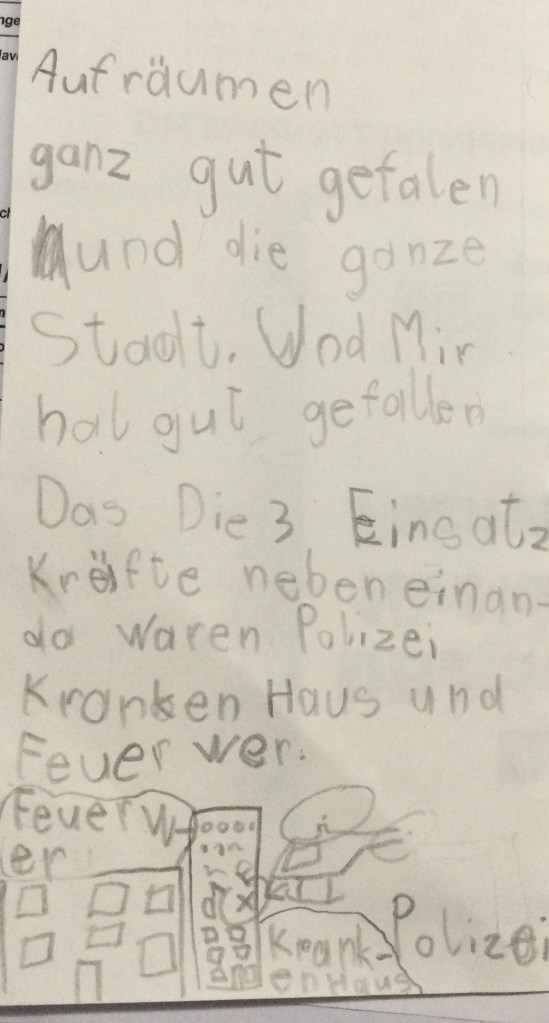 Aufräumen
ganz gut gefalen
und die ganze
Stadt. Und Mir
hat gut gefallen
Das Die 3 Einsatz
Kräfte neben einan-
da waren Polizei
Kranken Haus und
Feuer wer.
Feuerw-
er
Krank-
enHaus
Polizei